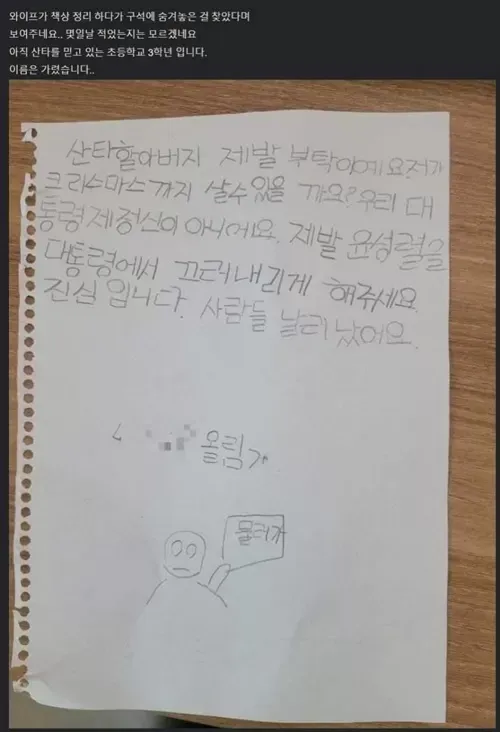 와이프가 책상 정리 하다가 구석에 숨겨놓은 걸 찾았다며
보여주네요.. 몇일날 적었는지는 모르겠네요
아직 산타를 믿고 있는 초등학교 3학년 입니다.
이름은 가렸습니다..
산타할아버지 제발 부탁이예요저가
크리스마스까지 살수 있을 까요? 우리 대
통령제정신이 아니에요. 제발 윤성렬을
대통령에서 끄러내리게 해주세요.
진심 입니다. 사람들 날리 났어요.
올림
물러가